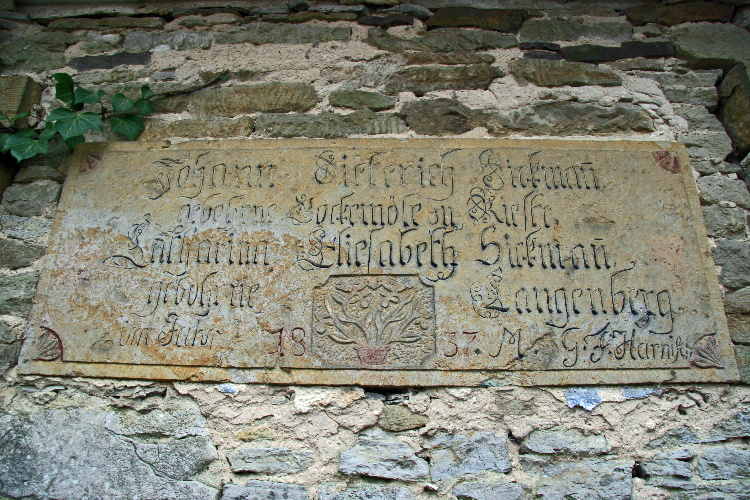 Johann Dieterich Sickmañ
gebohrne Lockemöle zu Rieste.
Catharina Elisabeth Sickmañ,
gebohrne Langenberg.
im Jahr 1837. M. G. F. Harnisch